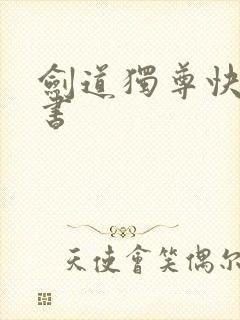 劍道獨尊快
書
天使會笑偶尔